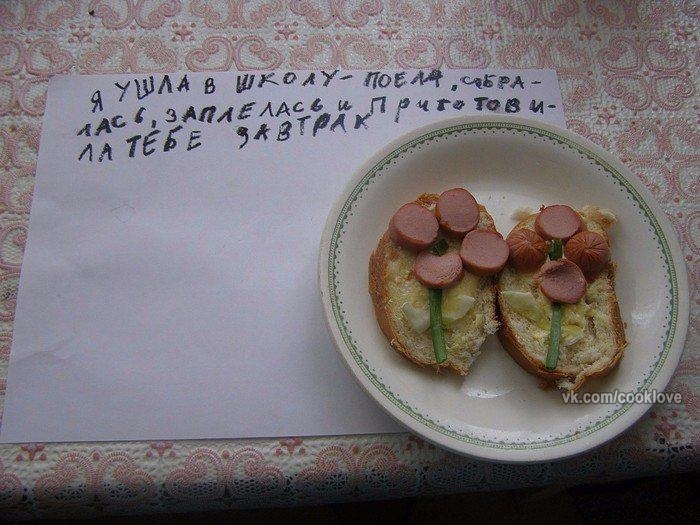 Я УШЛА В ШКОЛУ- ПОЕЛА, СОБРА-
ЛАСЬ, ЗАПЛЕЛАСЬ И ПРИГОТОВИ-
ЛА ТЕБЕ ЗАВТРАК
vk.com/cooklove